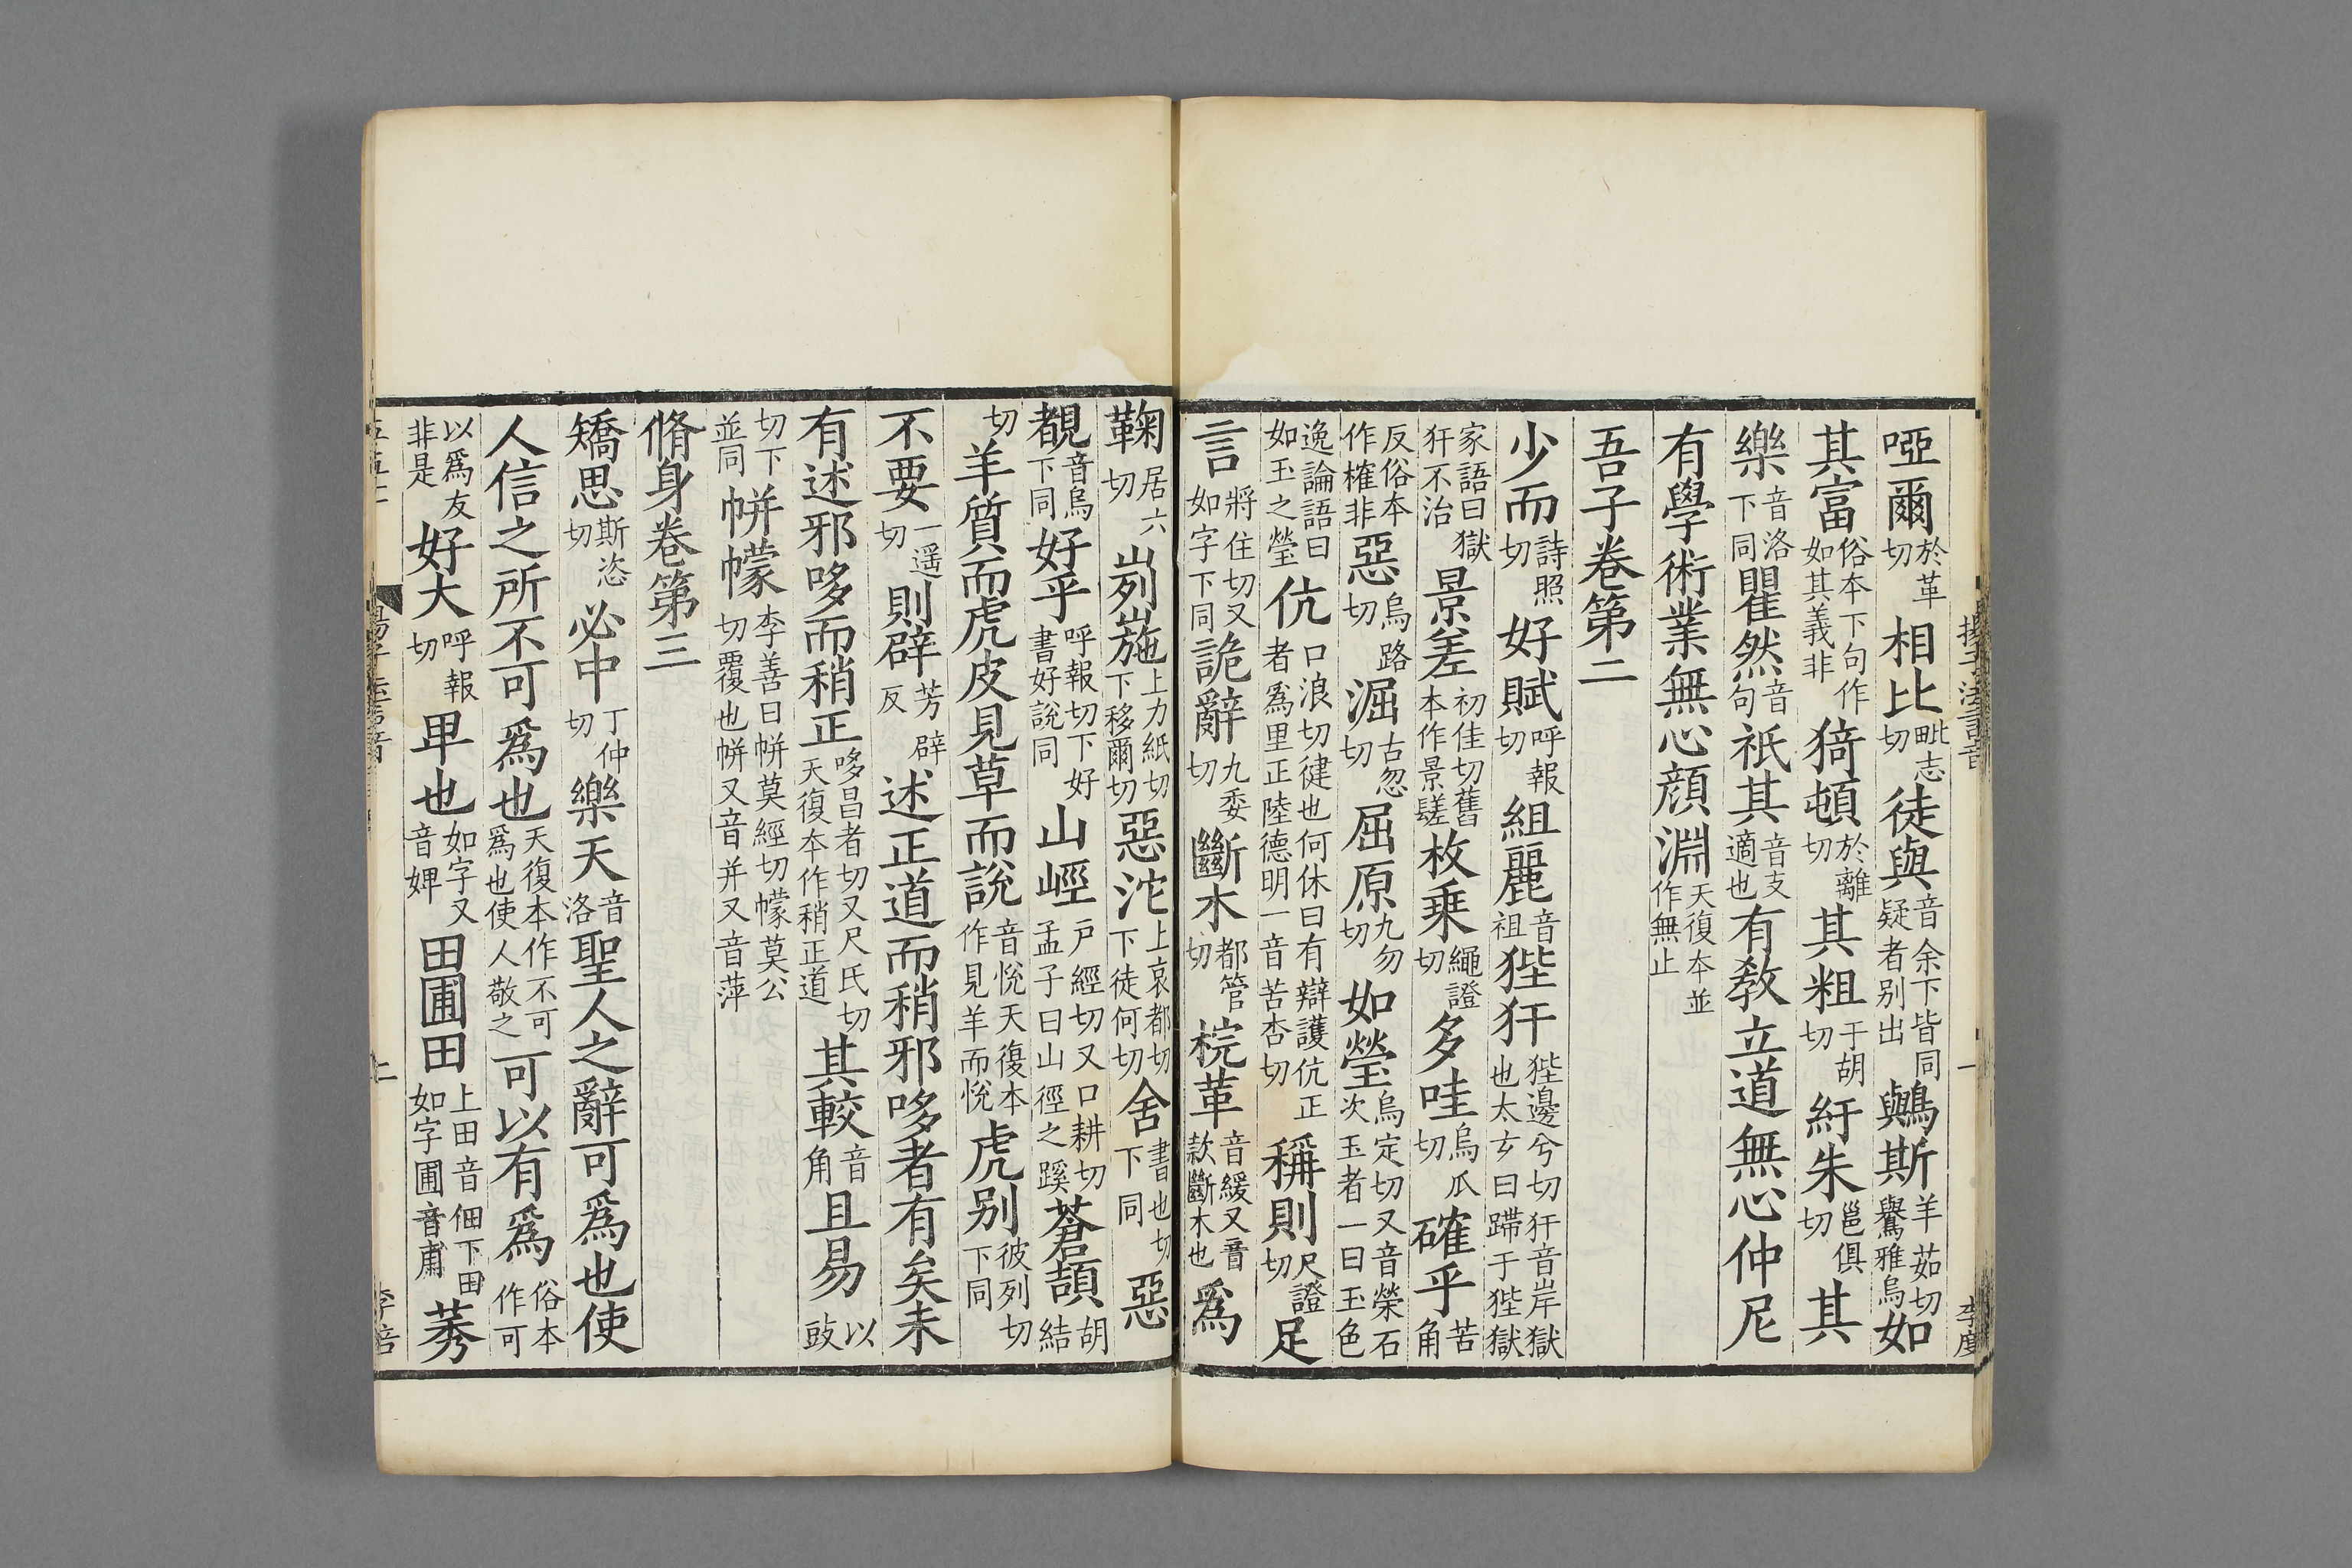 啞爾於革切相比毗志切徒與音余下皆同疑者别出鸒斯羊茹切鸒雅烏如
其富俗本下句作如其義非猗頓於離切其粗千胡切紆朱邕俱切其
樂音洛下同瞿然音句祇其音支適也有敎立道無心仲尼
有學術業無心顔淵天復本並作無止
吾子卷第二
少而詩照切好賦呼報切組麗音祖狴犴狴邊兮切犴音岸獄也太玄曰蹛于狴獄
家語曰獄犴不治景差初佳切舊本作景瑳枚乗繩證切多哇烏瓜切確乎苦角
反俗本作榷非惡烏路切淈古忽切屈原九勿切如瑩烏定切又音榮石次玉者一曰玉色
逸論語曰如玉之瑩伉口浪切健也何休曰有辯護伉正者爲里正陸德明一音苦杏切稱則尺證切足
言將住切又如字下同詭辭九委切斷木都管切梡革音緩又音款斷木也爲
鞠居六切峛崺上力紙切下移爾切惡沱上哀都切下徒何切舍書也切下同惡
覩音烏下同好乎呼報切下好書好說同山𡺲戸經切又口耕切孟子曰山徑之蹊蒼頡胡結
切羊質而虎皮見草而說音悅天復本作見羊而悅虎别彼列切下同
不要一遥切則辟芳辟反述正道而稍邪哆者有矣未
有述邪哆而稍正哆昌者切又尺氏切天復本作稍正道其較音角且易以豉
切下並同帡幪李善曰帡莫經切幪莫公切覆也帡又音并又音萍
脩身卷第三
矯思斯恣切必中丁仲切樂天音洛聖人之辭可爲也使
人信之所不可爲也天復本作不可爲也使人敬之可以有爲俗本作可
以爲友非是好大呼報切卑也如字又音婢田圃田上田音佃下田如字圃音甫莠